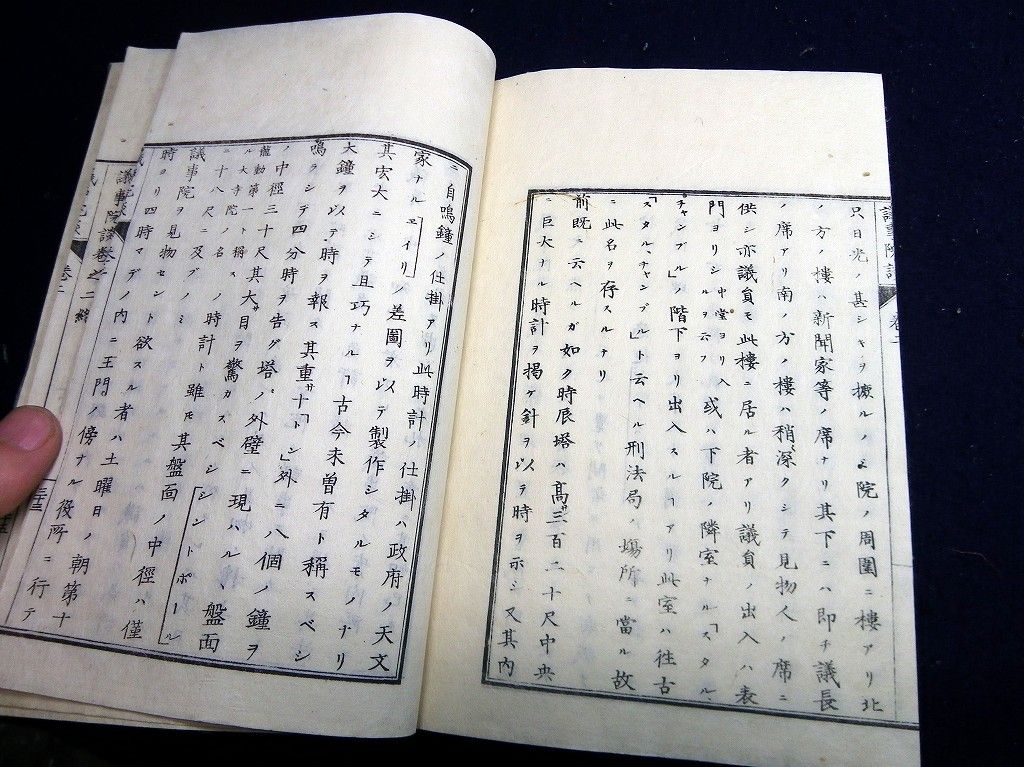 只日光ノ甚シキヲ擁ルノミ院ノ周圍ニ樓アリ北
ノ方ノ樓ハ新聞家等ノ席ナリ其下ニハ即チ議長
ノ席アリ南ノ方ノ樓ハ稍深クシテ見物人ノ席ニ
供シ亦議員モ此樓ニ居ル者アリ議員ノ出入ハ表
門ヨリシ中堂ヨリ入ルヲ云フ或ハ下院ノ隣室ナル「スタル、
チャンブル」ノ階下ヨリ出入スルヿアリ此室ハ往古
「スタルチャンブル」ト云ヘル刑法局ノ塲所ニ當ル故
ニ此名ヲ存スルナリ
前既ニ云ヘルガ如ク時辰塔ハ高サ三百二十尺中央
ニ巨大ナル時計ヲ掲ケ針ヲ以テ時ヲ示シ又其内
議事院談 卷二
ニ自鳴鐘ノ仕掛アリ此時計ノ仕掛ハ政府ノ天文
家ナル「エイリ」ノ差圖ヲ以テ製作シタルモノナリ
其宏大ニシテ且巧ナルヿ古今未曽有ト稱スベシ
大鐘ヲ以テ時ヲ報ス其重サ十「トン」外ニ八個ノ鐘ヲ
鳴ラシテ四分時ヲ告グ塔ノ外壁ニ現ハル、盤面
ノ中徑三十尺其大サ目ヲ驚カスベシ「シントポール」
龍動第一ノ大寺院ノ名ト稱スル時計ト雖モ其盤面ノ中徑ハ僅
ニ十八尺ニ及ブノミ
議事院ヲ見物セント欲スル者ハ土曜日ノ朝第十
時ヨリ四時マデノ内ニ王門ノ傍ナル役所ニ行テ
議事院談卷之二終
卷二